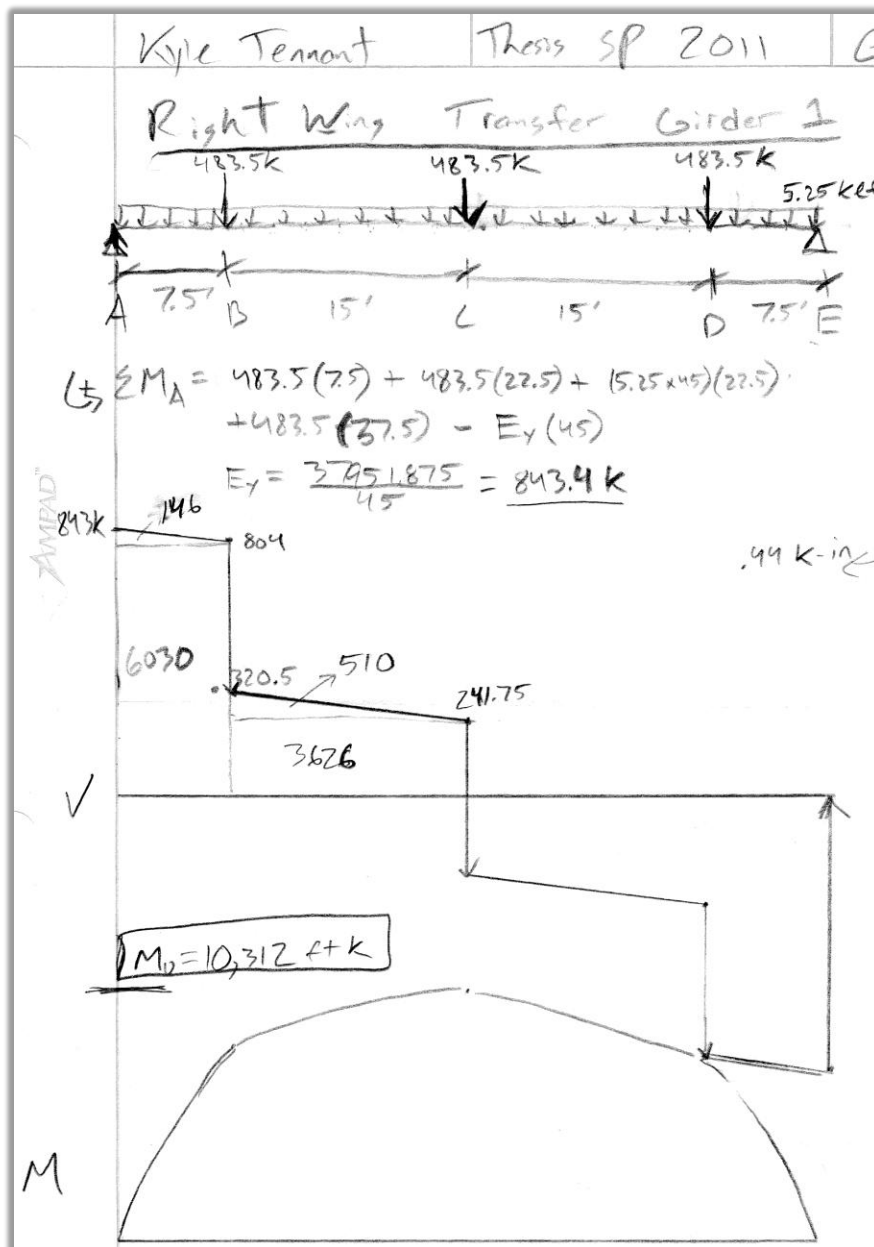 Kyle Tennant Thesis SP 2011 G
Right Wing Transfer Girder 1
483.5K 483.5K 483.5K
5.25 klf
7.5' 15' 15' 7.5'
A B C D E
ΣM_A = 483.5(7.5) + 483.5(22.5) + (5.25x45)(22.5)
+483.5(37.5) - E_Y(45)
E_Y = 37951.875 / 45 = 843.4 K
AMPAD™
843K 146 804
.44 K-in
6030 320.5 510 241.75
3626
V
M_U=10,312 ft K
M